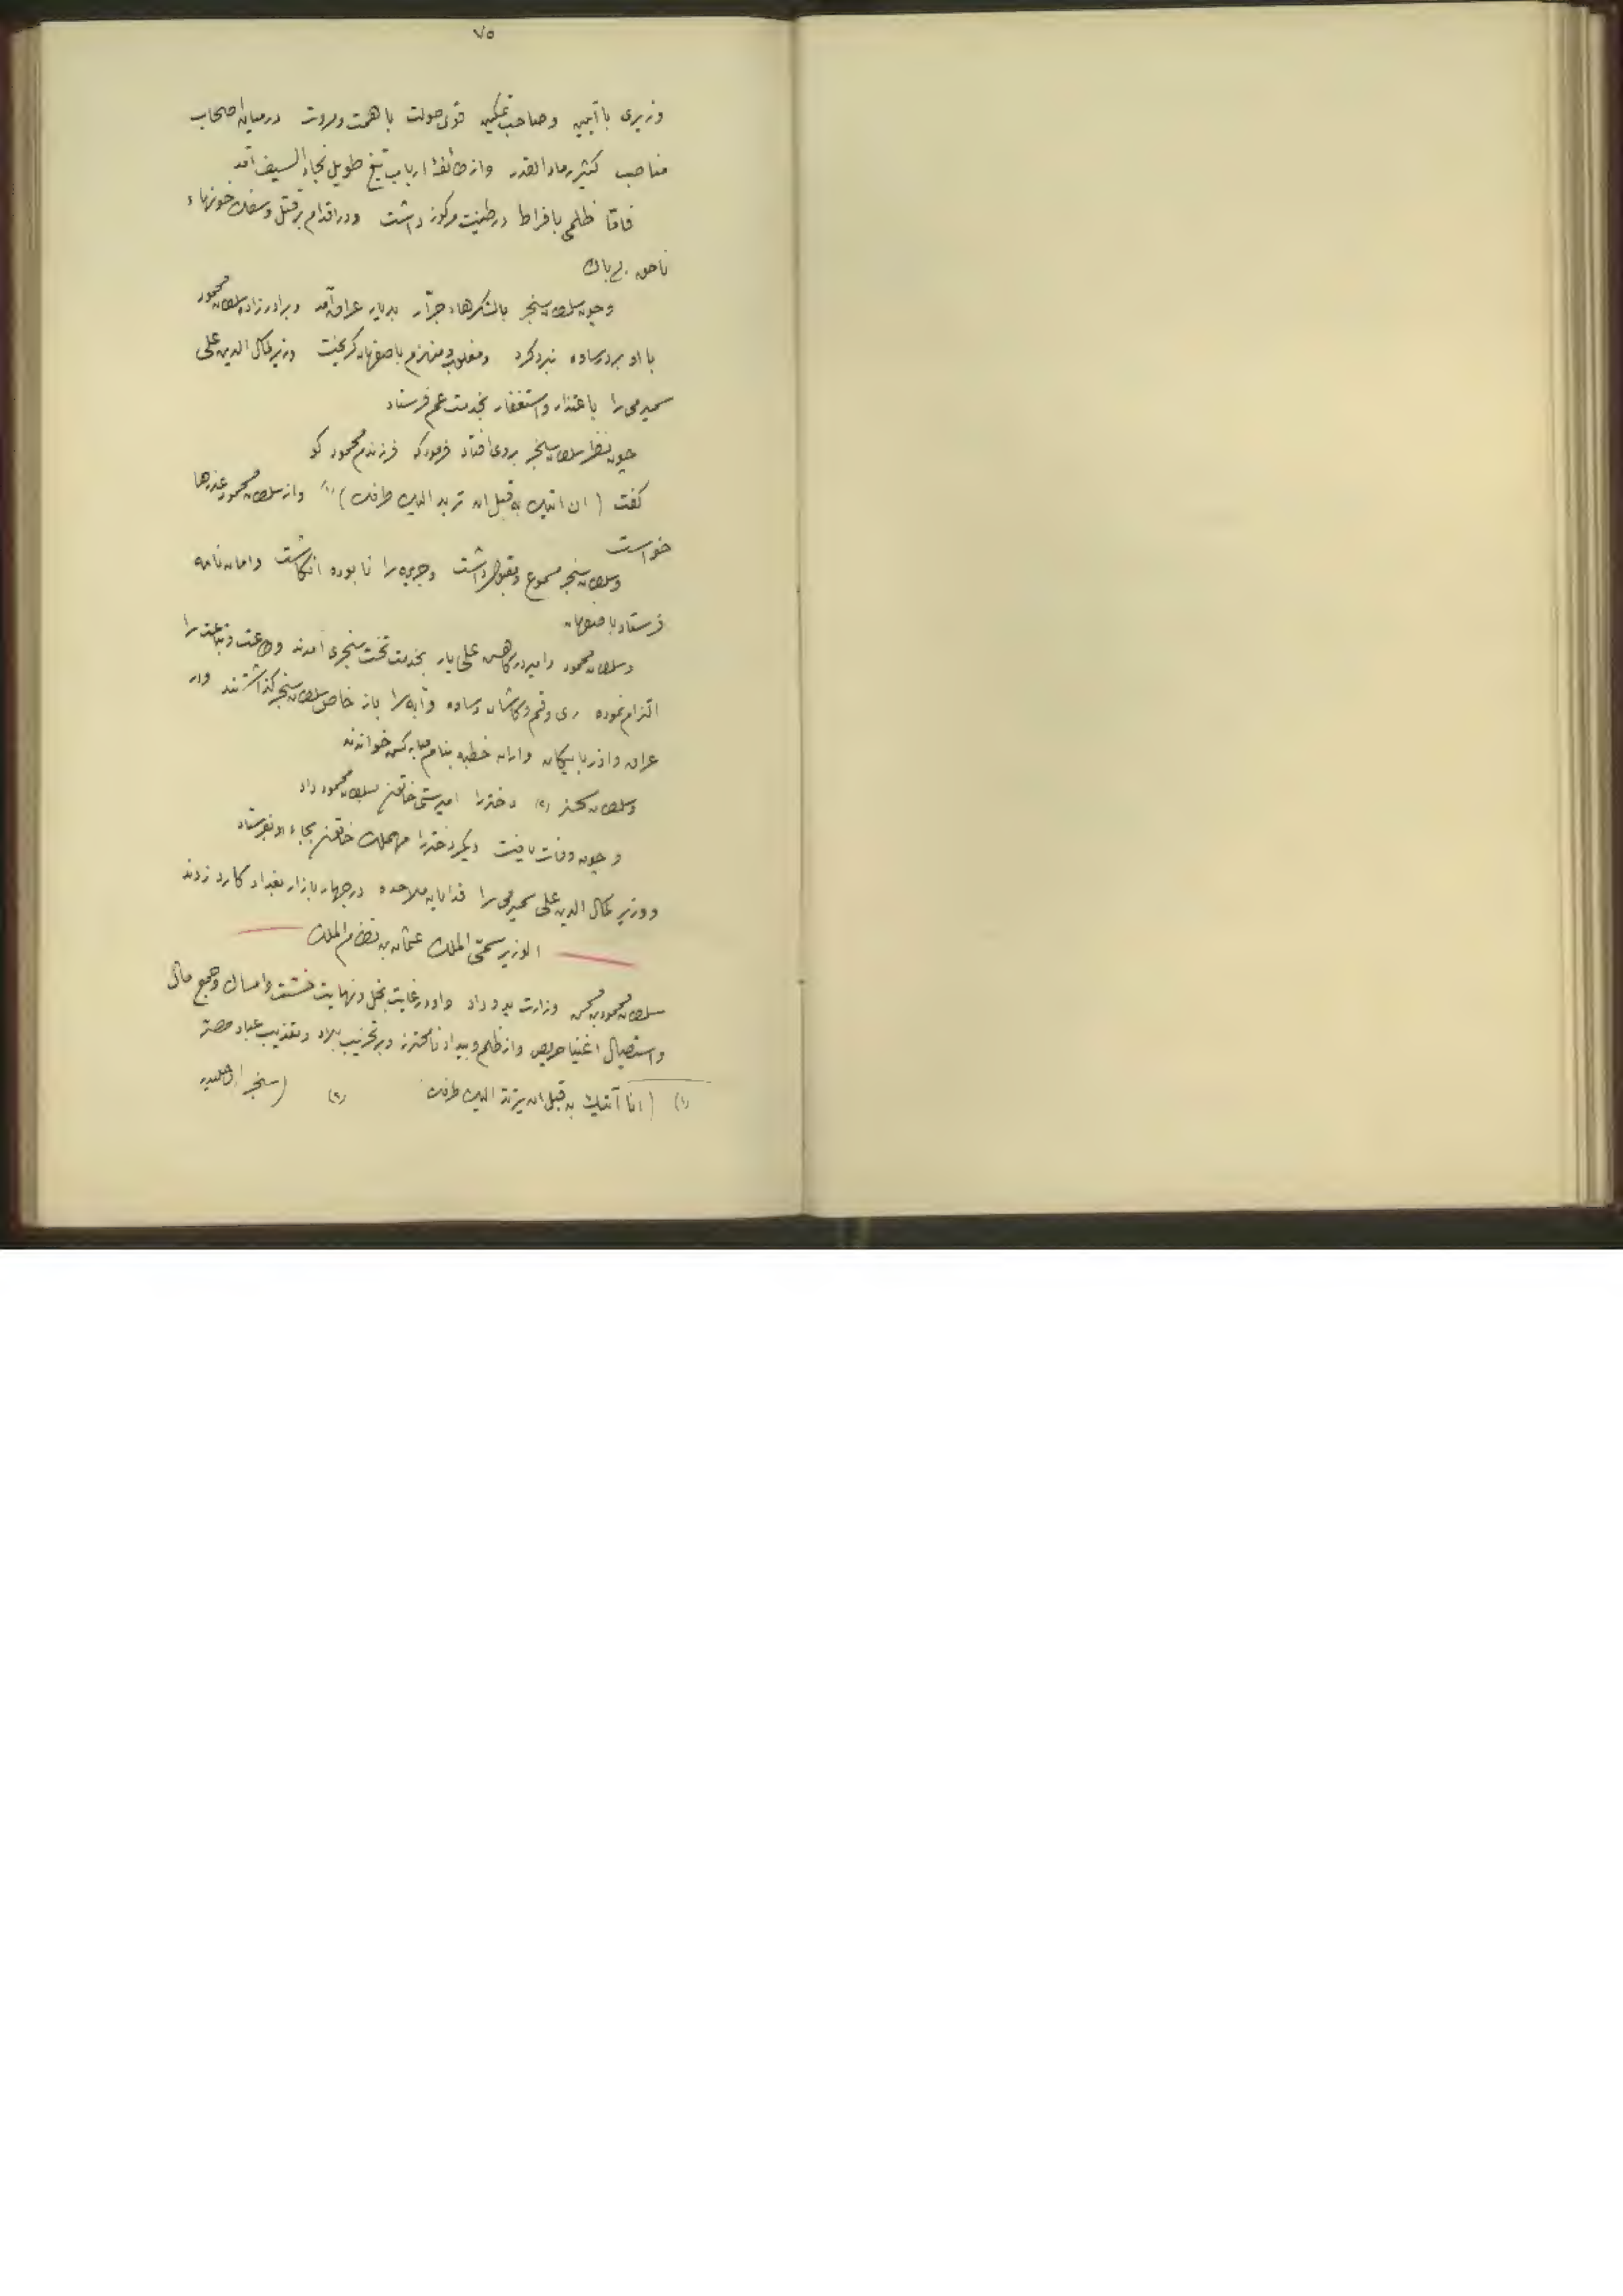 ٧٥
وزیری با آیین وصاحب تمکین قوی صولت با همت ومروت درمیان اصحاب
مناصب کثیر رماد القدر واز طائفهٔ ارباب تیغ طویل نجاد السیف آمد
فاما ظلمی بافراط درطینت مرکوز داشت ودر اقدام بر قتل وسفک خونهاء
ناحق بی باک
وچون سلطان سنجر بالشکرهاء جرّار بدیار عراق آمد وبرادرزاده سلطان محمود
با او بردر ساوه نبرد کرد ومغلوب ومنهزم باصفهان کریخت وزیر کمال الدین علی
سمیرمی را باعتذار واستغفار بخدمت عم فرستاد
چون نظر سلطان سنجر بروی افتاد فرمود که فرزندم محمود کو
کفت (ان اتیک به قبل ان ترید الیک طرفک) (١) واز سلطان محمود عذرها
خواست
وسلطان سنجر مسموع ومقبول داشت وجریمه را نابوده انکاشت وامان نامه
فرستاد باصفهان
وسلطان محمود وامیر درکاهش علی بار بخدمت تخت سنجری آمدند وطاعت وتباعت را
التزام نموده ری وقم وکاشان وساوه وآبه را باز خاص سلطان سنجر کذاشتند ودر
عراق واذربایکان واران خطبه بنام مبارکش خواندند
وسلطان سکنر (٢) دختررا امیرستی خاتون بسلطان محمود داد
وچون وفات یافت دیکر دختررا مهملک خاتون بجاء او بفرستاد
ووزیر کمال الدین علی سمیرمی را فدایان ملاحده در چهار بازار بغداد کارد زدند
الوزیر شمس الملک عثمان بن نظام الملک
سلطان محمود بن محمد وزارت بدو داد واو در غایت بخل ونهایت خسّت وامساک وجمع مال
واستیصال اغنیا حریص واز ظلم وبیداد نامحترز وبر تخریب بلاد وتعذیب عباد مصرّ
(١) (انا آتیک به قبل ان یرتد الیک طرفک (٢) (سنجر